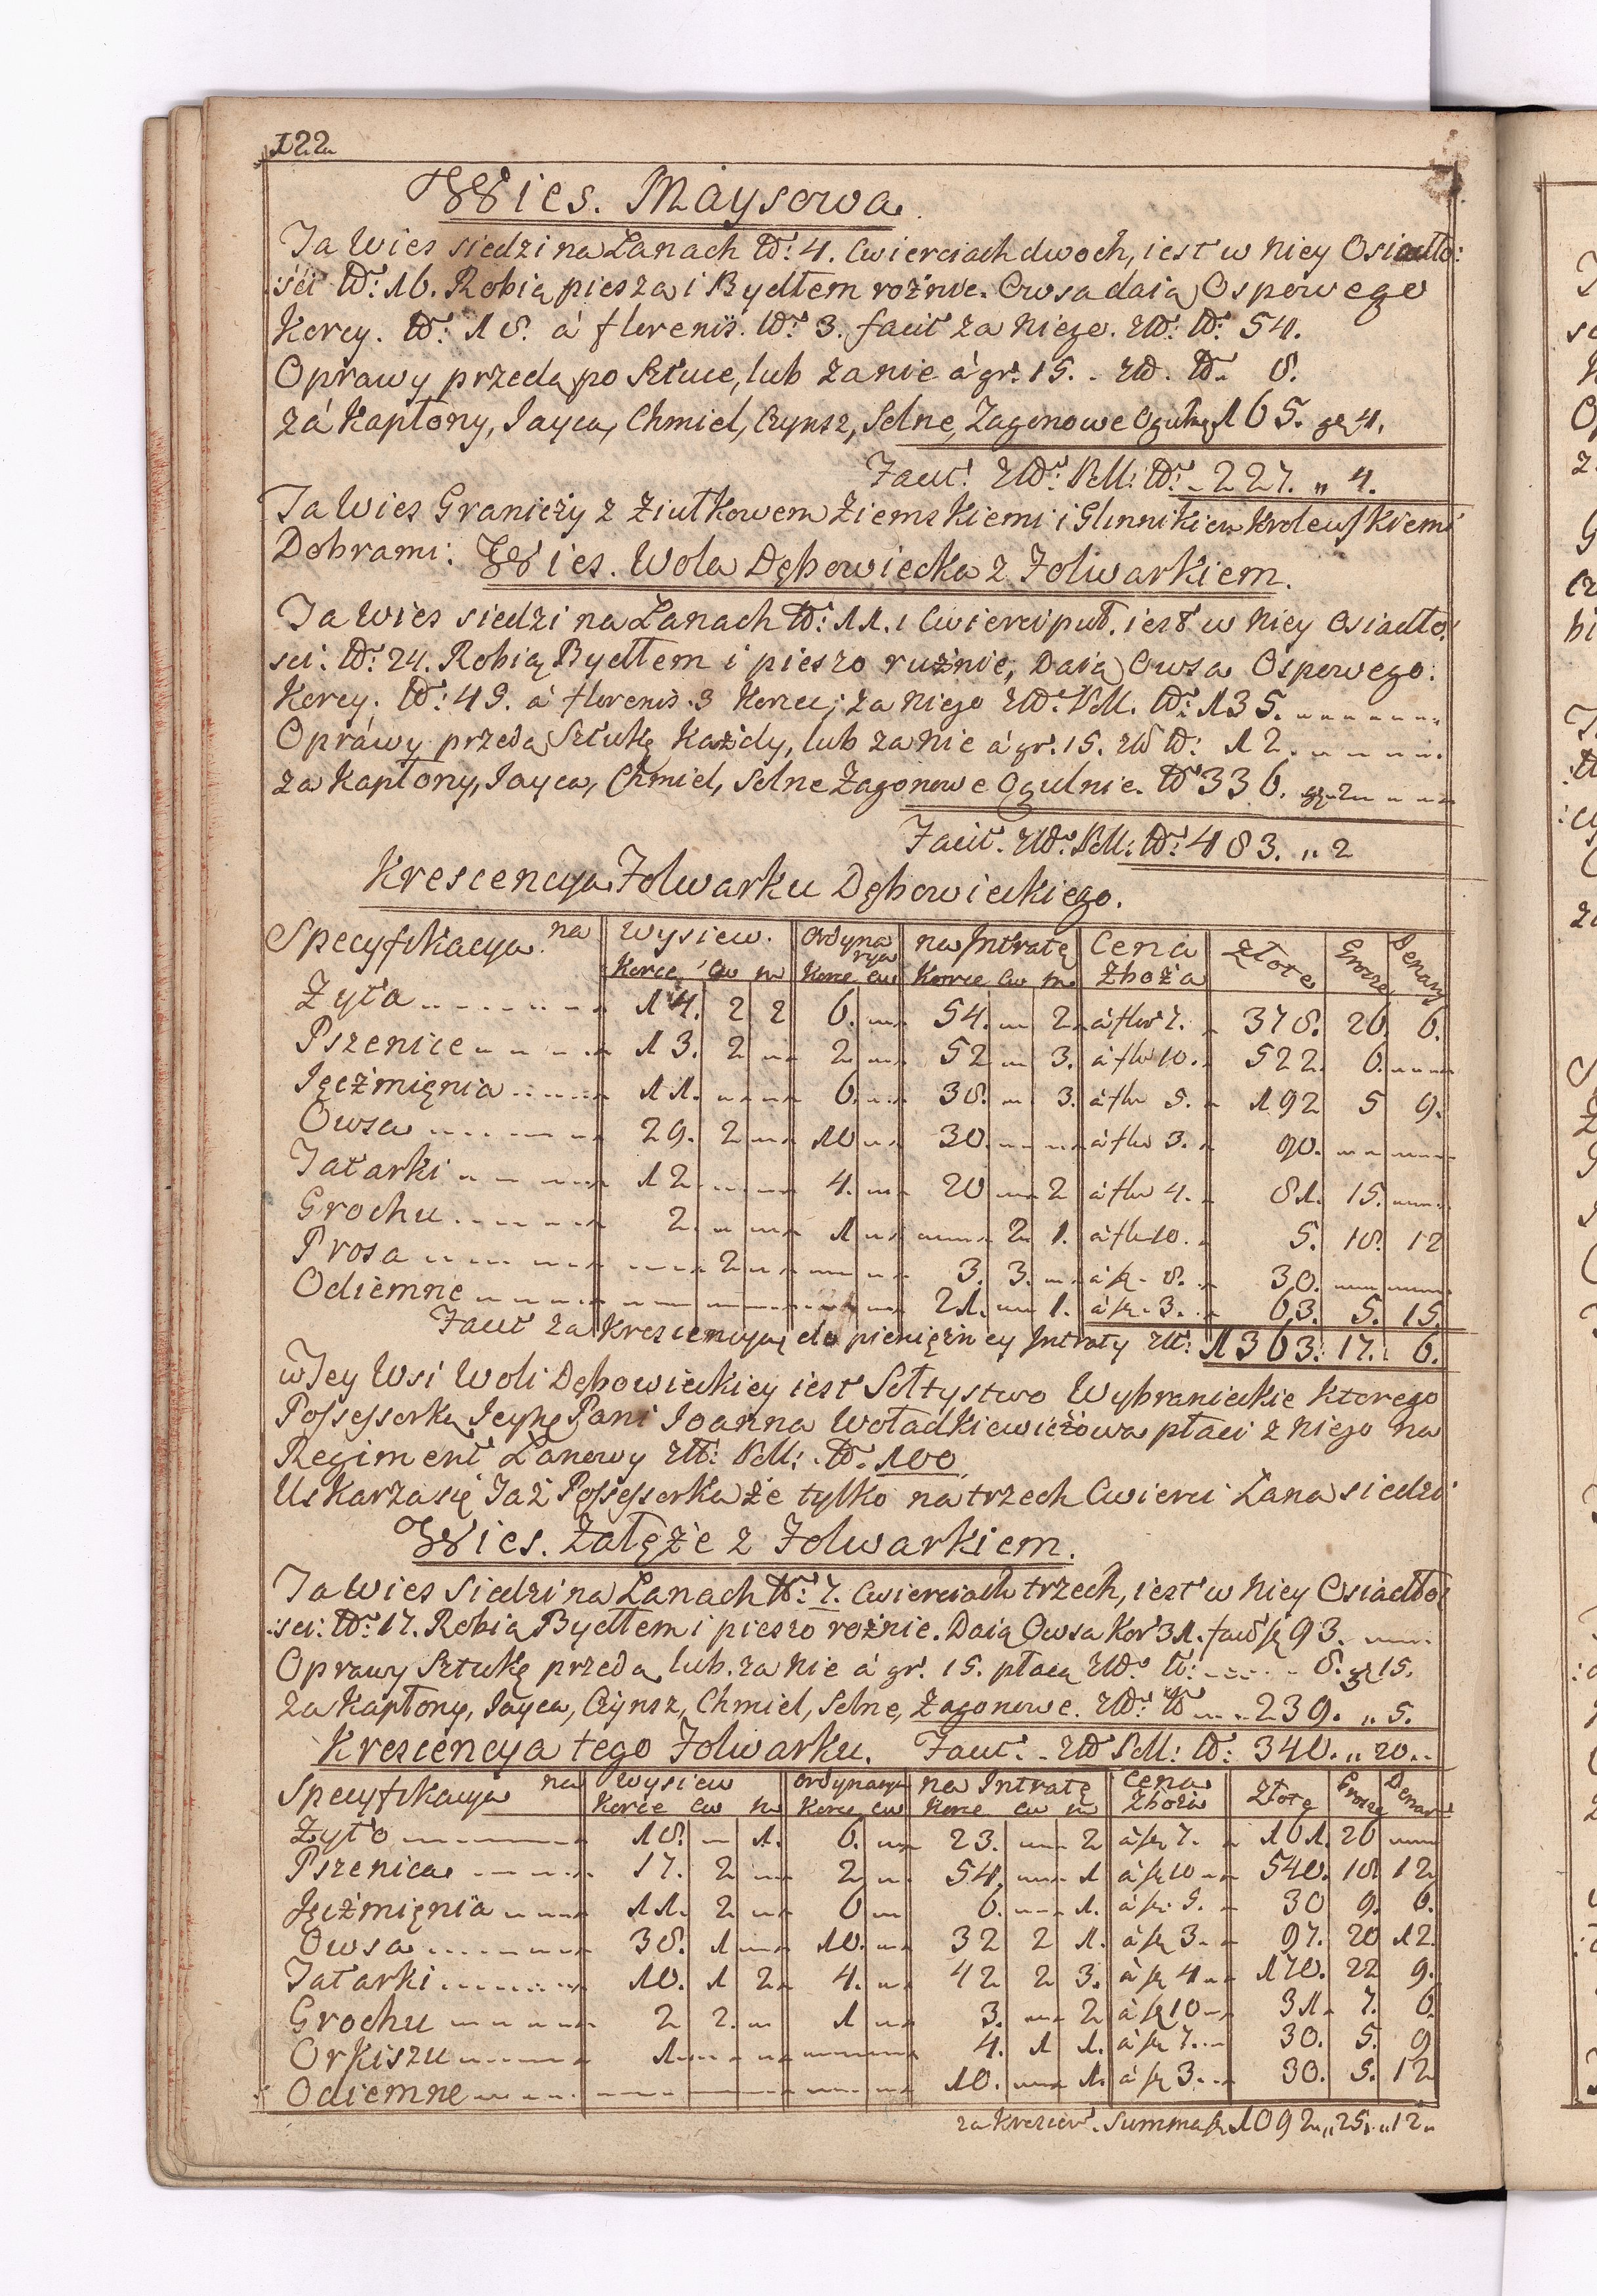 122
Wies. Maysowa.
Ta Wies siedzi na Łanach No: 4. Cwierciach dwoch, iest w Niey Osiadło:
:sci No: 16. Robią pieszo i Bydłem rożnie. Owsa daią Ospowego
Korcy. No: 18. á florenis. No: 3. facit za niego. zło: No: 54.
Oprawy przedą po Sztuce, lub za nie á gr: 15. . zło. No. 8.
zá Kapłony, Jayca, Chmiel, Czynsz, Selne, Zagonowe Ogułnie 165. gr 4.
Facit. Zło: Poll: No: 227. „ 4.
Ta Wies Graniczy z Ziutkowem Ziemskiemi i Glinnikiem Krolewskiemi
Dobrami:
Wies. Wola Dębowiecka z Folwarkiem.
Ta Wies siedzi na Łanach No: 11. 1 Cwierci puł. iest w Niey Osiadło:
sci: No: 24. Robią Bydłem i pieszo rużnie, Daią Owsa Ospowego:
Korcy. No: 49. á florenis. 3 Korzec; za Niego Zło: Poll. No: 135.
Oprawy przedą Sztukę Każdy, lub za nie á gr: 15. zło No: 12.
za Kapłony, Jayca, Chmiel, Selne Zagonowe Ogulnie. No 336. gr. 2
Facit. Zło: Poll: No: 483. „ 2
Krescencya Folwarku Dębowieckiego.
Specyfikacya na Wysiew. Ordynarya na Intratę Cena Złote Grosze Denary
Korce Cw m Korce Cw Korce Cw m Zboża
Żyta 14. 2 2 6. 54. 2 á flor 7. 378. 26. 6.
Pszenice 13. 2 2 52 3. á flor 10. 522. 6.
Jęczmięnia 11. 6. 38. 3. á flor 5. 192 5 9.
Owsa 29. 2 10 30. á flor 3. 90.
Tatarki 12 4. 20 2 á flor 4. 81. 15.
Grochu 2. 1 2 1. á flor 10. 5. 18. 12
Prosa 2 3. 3. á fl. 8. 30.
Odiemne 21. 1. á fl. 3. 63. 5. 15.
Facit za Krescencyą do pienięzney Intraty Zł: 1363. 17. 6.
w Tey Wsi Woli Dębowieckiey iest Sełtystwo Wybranieckie ktorego
Possessorka Jeymć Pani Joanna Woładkiewiczowa płaci z Niego na
Regiment Łanowy Zł: Poll: No: 100.
Uskarza się Taż Possessorka że tylko na trzech Cwierci Łana siedzi
Wies. Załęże z Folwarkiem.
Ta Wies Siedzi na Łanach No: 7. Cwierciach trzech, iest w Niey Osiadło:
:sci: No: 17. Robią Bydłem i pieszo rożnie. Daią Owsa Kor 31. facit fl 93.
Oprawy Sztukę przedą lub. za nie á gr. 15. płacą Zło: No: 8. gr 15.
Za Kapłony, Jayca, Czynsz, Chmiel, Selne, Zagonowe. Zło: No 239. „ 5.
Krescencya tego Folwarku. Facit. Zło Poll: No: 340. „ 20.
Specyfikacya na Wysiew Ordynarya na Intratę Cena Złote Grosze Denar
Korce Cw m Korce Cw Korce Cw m Zboża
Żyto 18. 1. 6. 23. 2 á fl 7. 161. 26
Pszenica 17. 2 2 54. 1 á fl 10 540. 18. 12
Jęczmięnia 11. 2 6 6. 1. á fl. 5. 30 9. 6.
Owsa 38. 1 10. 32 2 1. á fl 3. 97. 20 12.
Tatarki 10. 1 2 4. 42 2 3. á fl 4 170. 22 9.
Grochu 2 2. 1 3. 2 á fl 10 31. 7. 6.
Orkiszu 1. 4. 1 1. á fl 7. 30. 5. 9
Odiemne 10. 1. á fl 3. 30. 5. 12
za Krescen. Summa fl. 1092„ 25. „ 12„